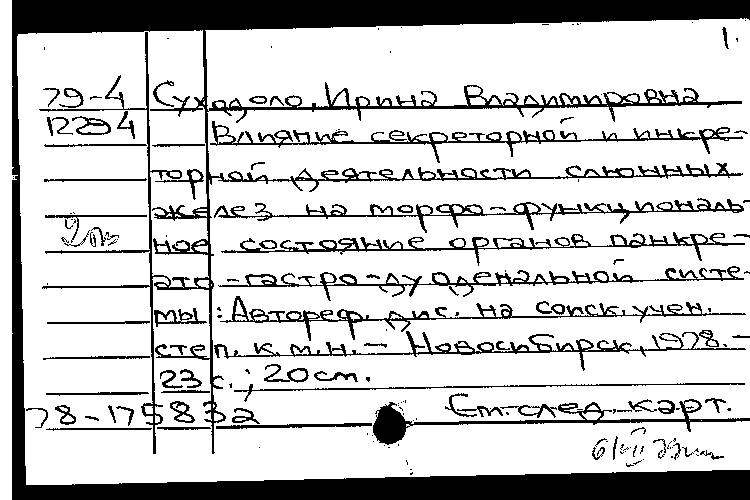 1.
79-4 Суходоло, Ирина Владимировна.
12294 Влияние секреторной и инкре-
торной деятельности слюнных
желез на морфо-функциональ-
ное состояние органов панкре-
ато-гастро-дуоденальной систе-
мы : Автореф. дис. на соиск. учен.
степ. к. м. н. – Новосибирск, 1978. –
23 с. ; 20 см.
78-175832 См. след. карт.